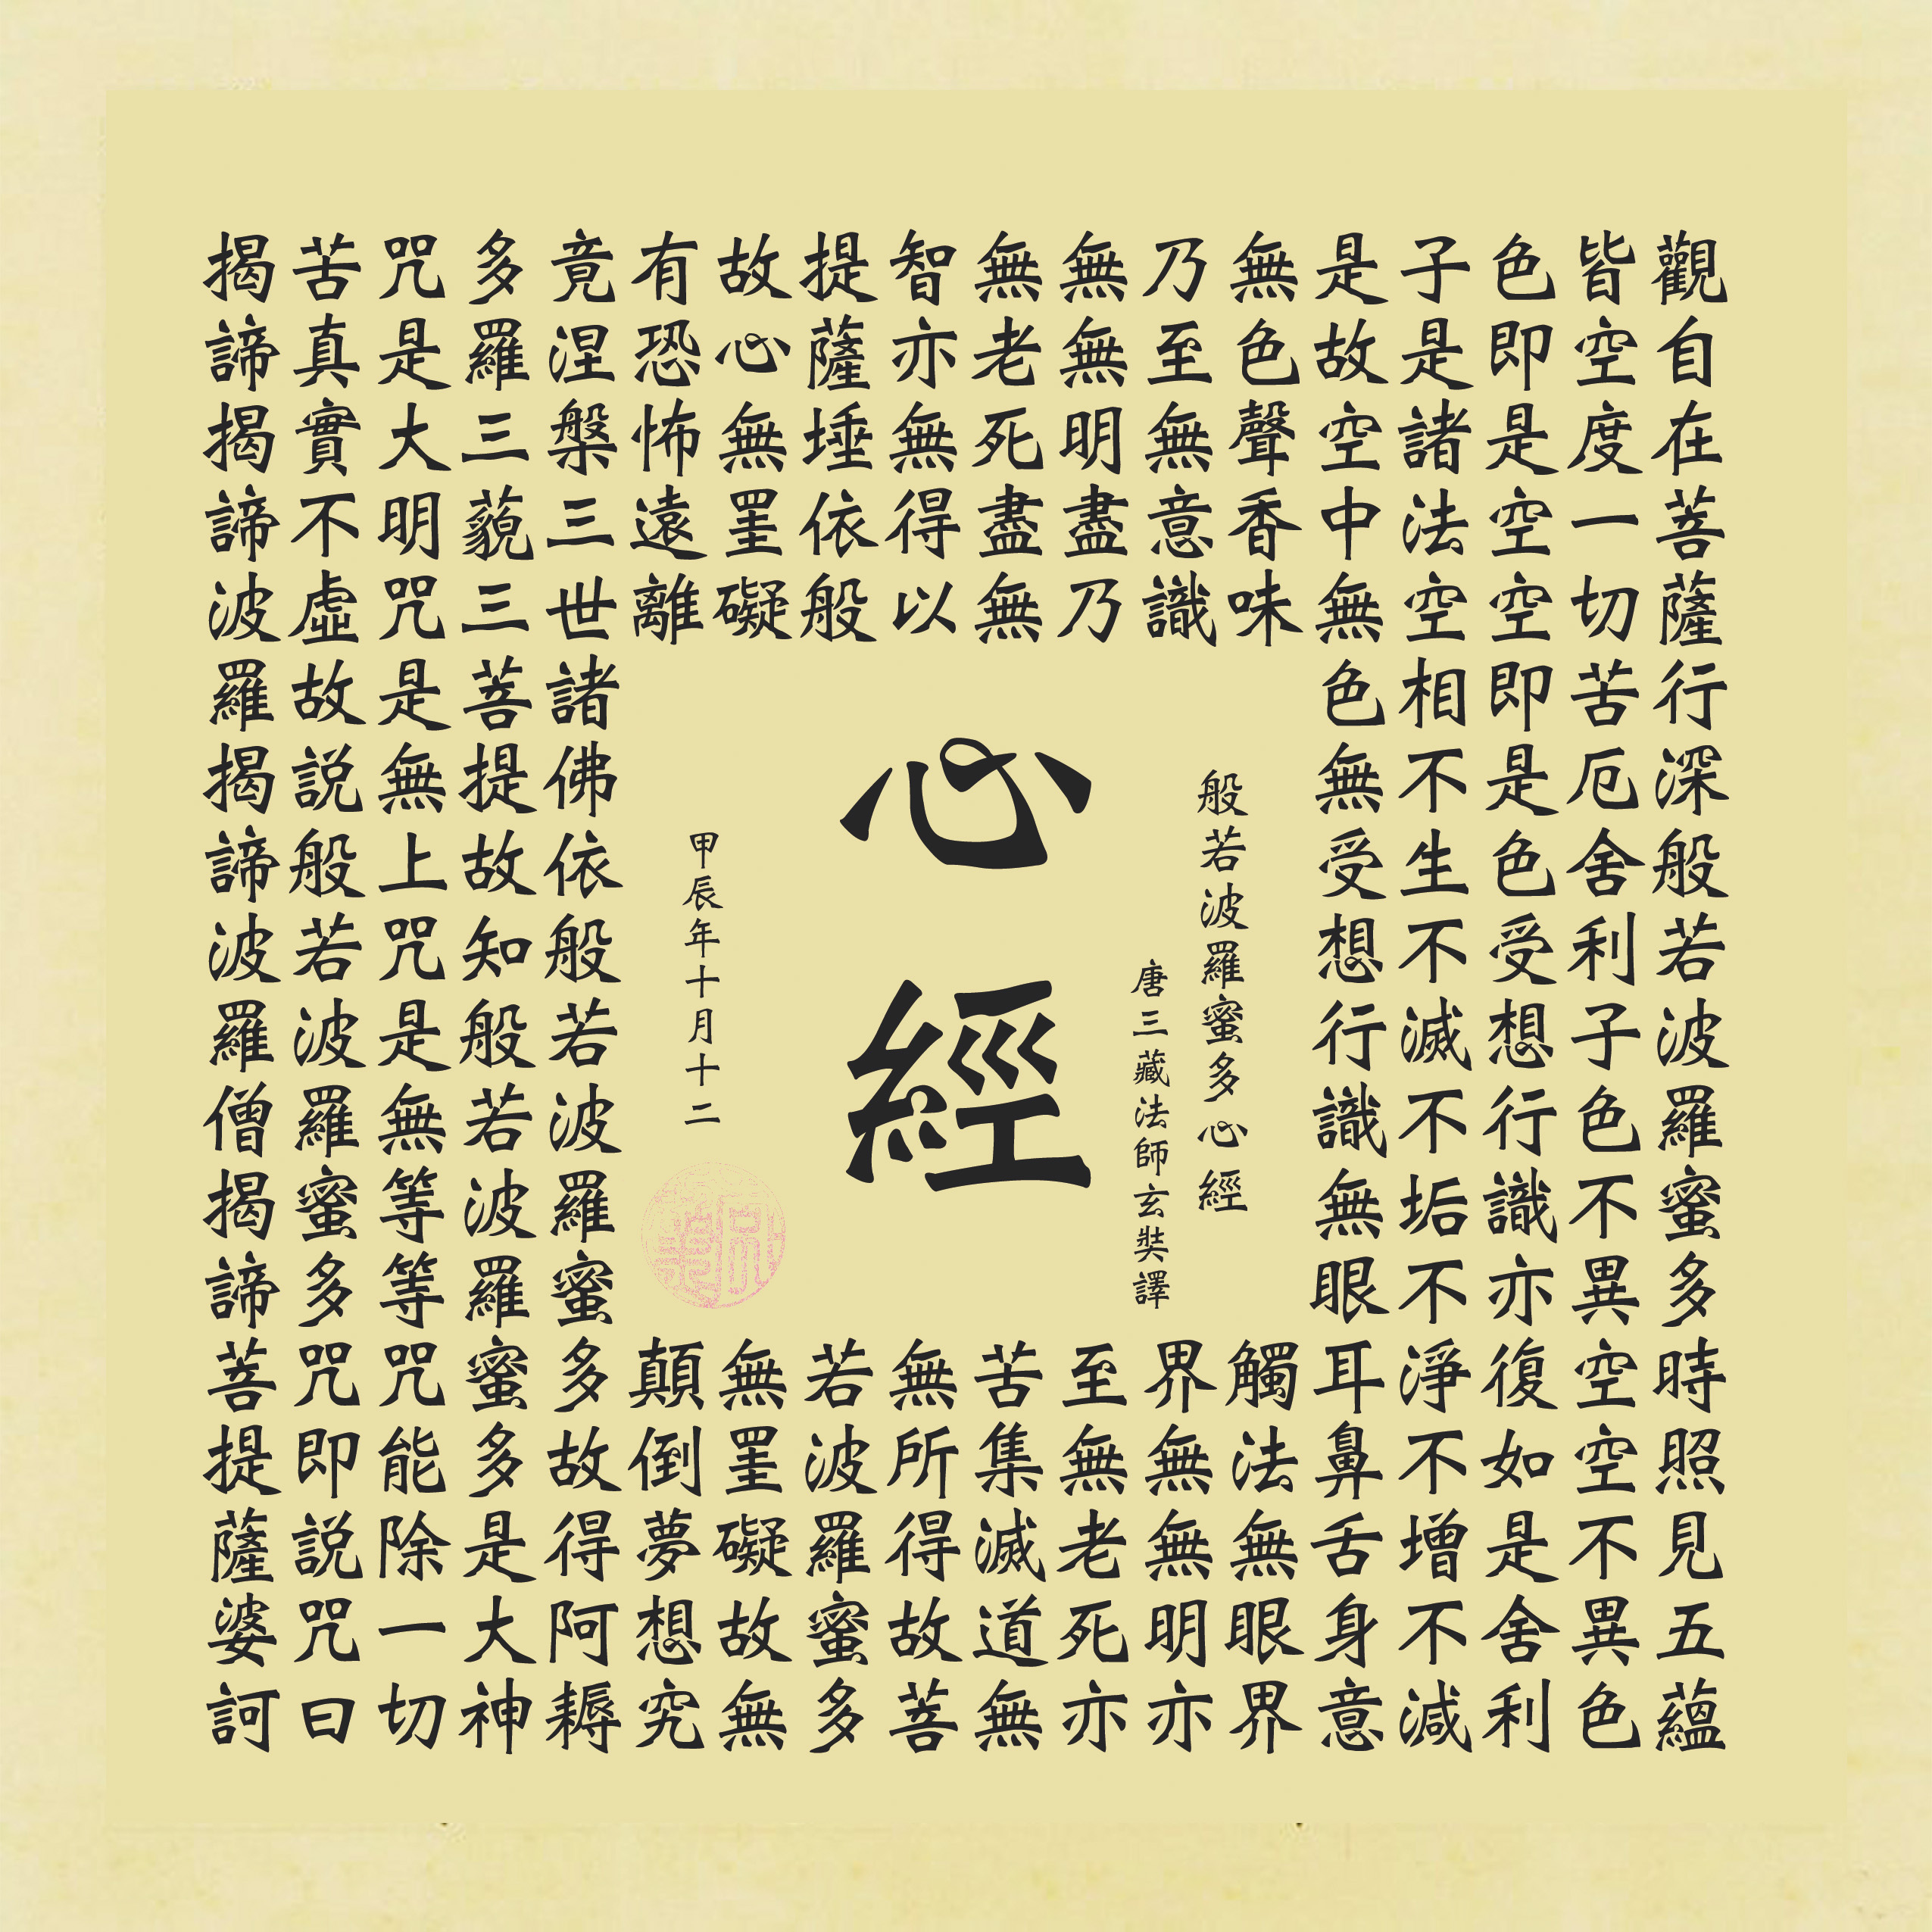 觀自在菩薩行深般若波羅蜜多時照見五蘊
皆空度一切苦厄舍利子色不異空空不異色
色即是空空即是色受想行識亦復如是舍利
子是諸法空相不生不滅不垢不淨不增不減
是故空中無色無受想行識無眼耳鼻舌身意
無色聲香味觸法無眼界
乃至無意識界無無明亦
無無明盡乃至無老死亦
無老死盡無苦集滅道無
智亦無得以無所得故菩
提薩埵依般若波羅蜜多
故心無罣礙無罣礙故無
有恐怖遠離顛倒夢想究
竟涅槃三世諸佛依般若波羅蜜多故得阿耨
多羅三藐三菩提故知般若波羅蜜多是大神
咒是大明咒是無上咒是無等等咒能除一切
苦真實不虛故説般若波羅蜜多咒即説咒曰
揭諦揭諦波羅揭諦波羅僧揭諦菩提薩婆訶
般若波羅蜜多心經
唐三藏法師玄奘譯
心經
甲辰年十月十二